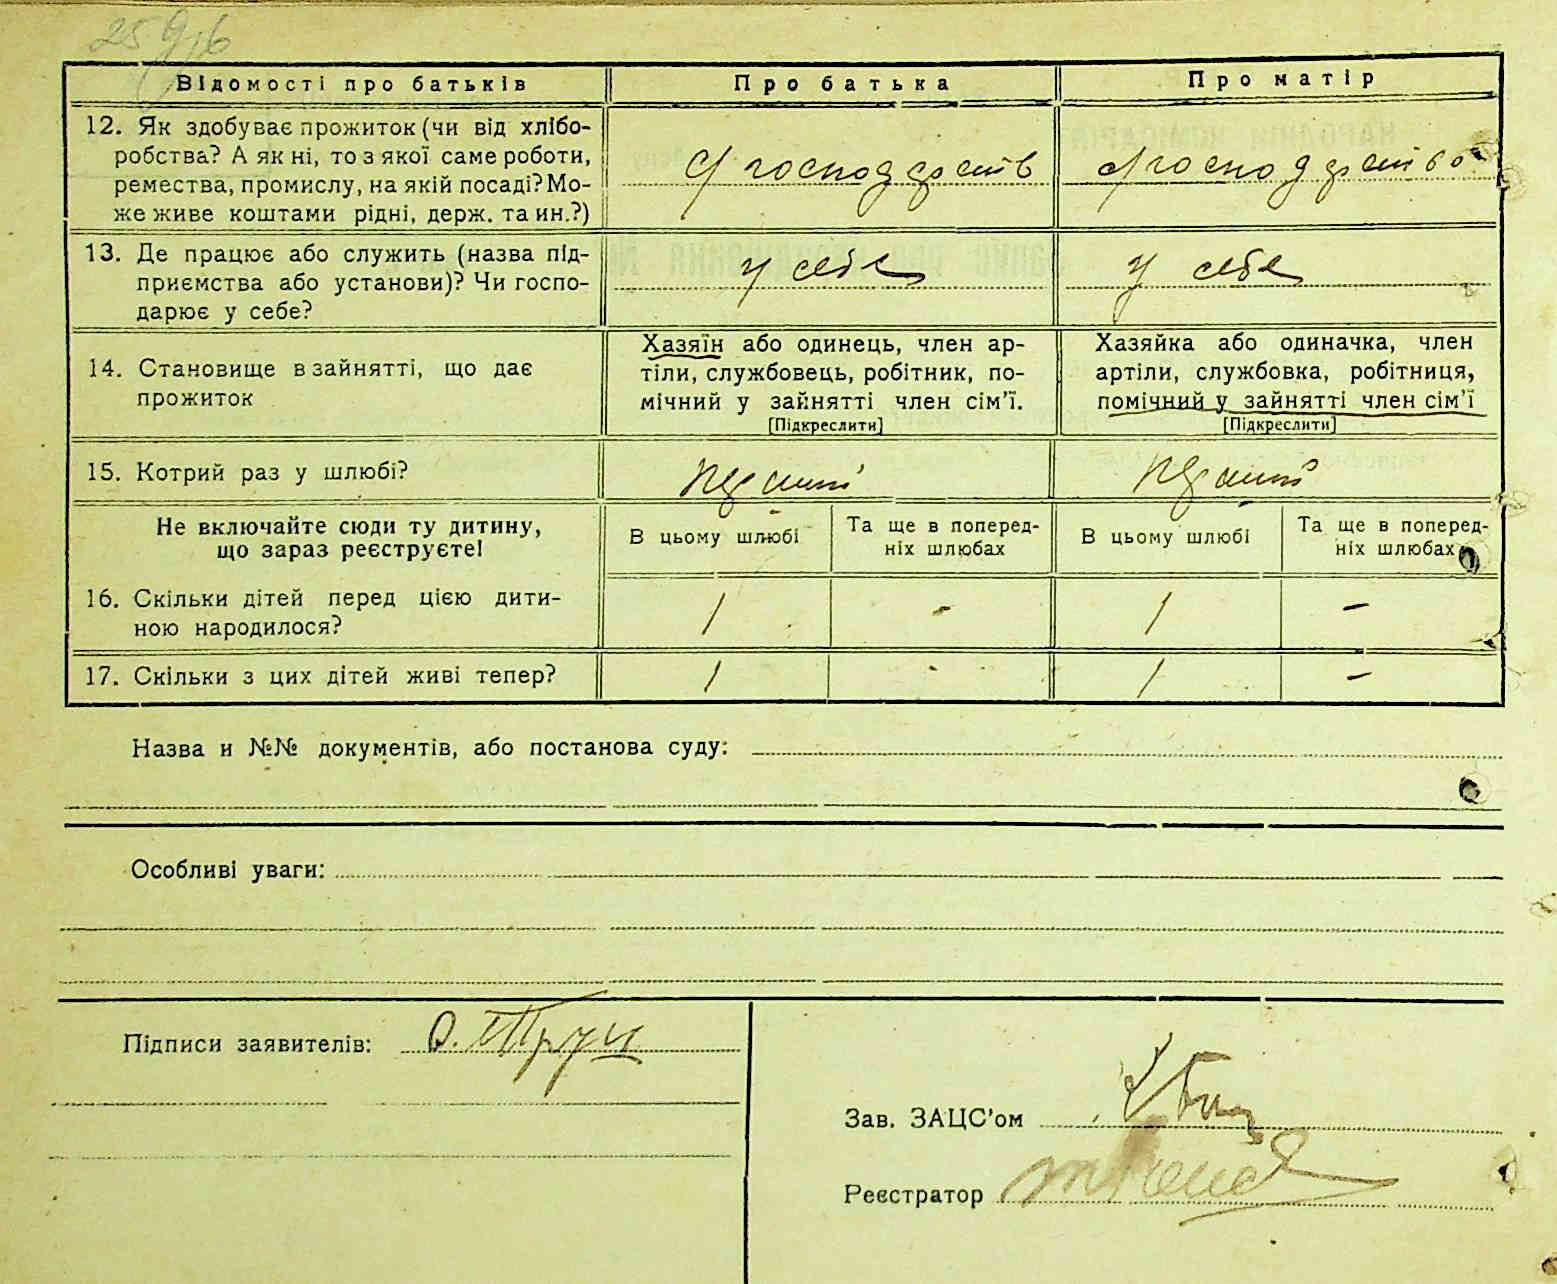 Відомості про батьків
Про батька
Про матір
12. Як здобуває прожиток (чи від хлібо-
робства? А як ні, то з якої саме роботи,
ремества, промислу, на якій посаді? Мо-
же живе коштами рідні, держ. та ин.?)
с/господарств
с/господарство
13. Де працює або служить (назва під-
приємства або установи)? Чи госпо-
дарює у себе?
у себе
у себе
14. Становище в зайнятті, що дає
прожиток
Хазяїн або одинець, член ар-
тіли, службовець, робітник, по-
мічний у зайнятті член сім'ї.
[Підкреслити]
Хазяйка або одиначка, член
артіли, службовка, робітниця,
помічний у зайнятті член сім'ї
[Підкреслити]
15. Котрий раз у шлюбі?
перший
перший
Не включайте сюди ту дитину,
що зараз реєструєте!
В цьому шлюбі
Та ще в поперед-
ніх шлюбах
В цьому шлюбі
Та ще в поперед-
ніх шлюбах
16. Скільки дітей перед цією дити-
ною народилося?
1 - 1 -
17. Скільки з цих дітей живі тепер?
1 - 1 -
Назва и №№ документів, або постанова суду:
Особливі уваги:
Підписи заявителів:
Зав. ЗАЦС'ом
Реєстратор